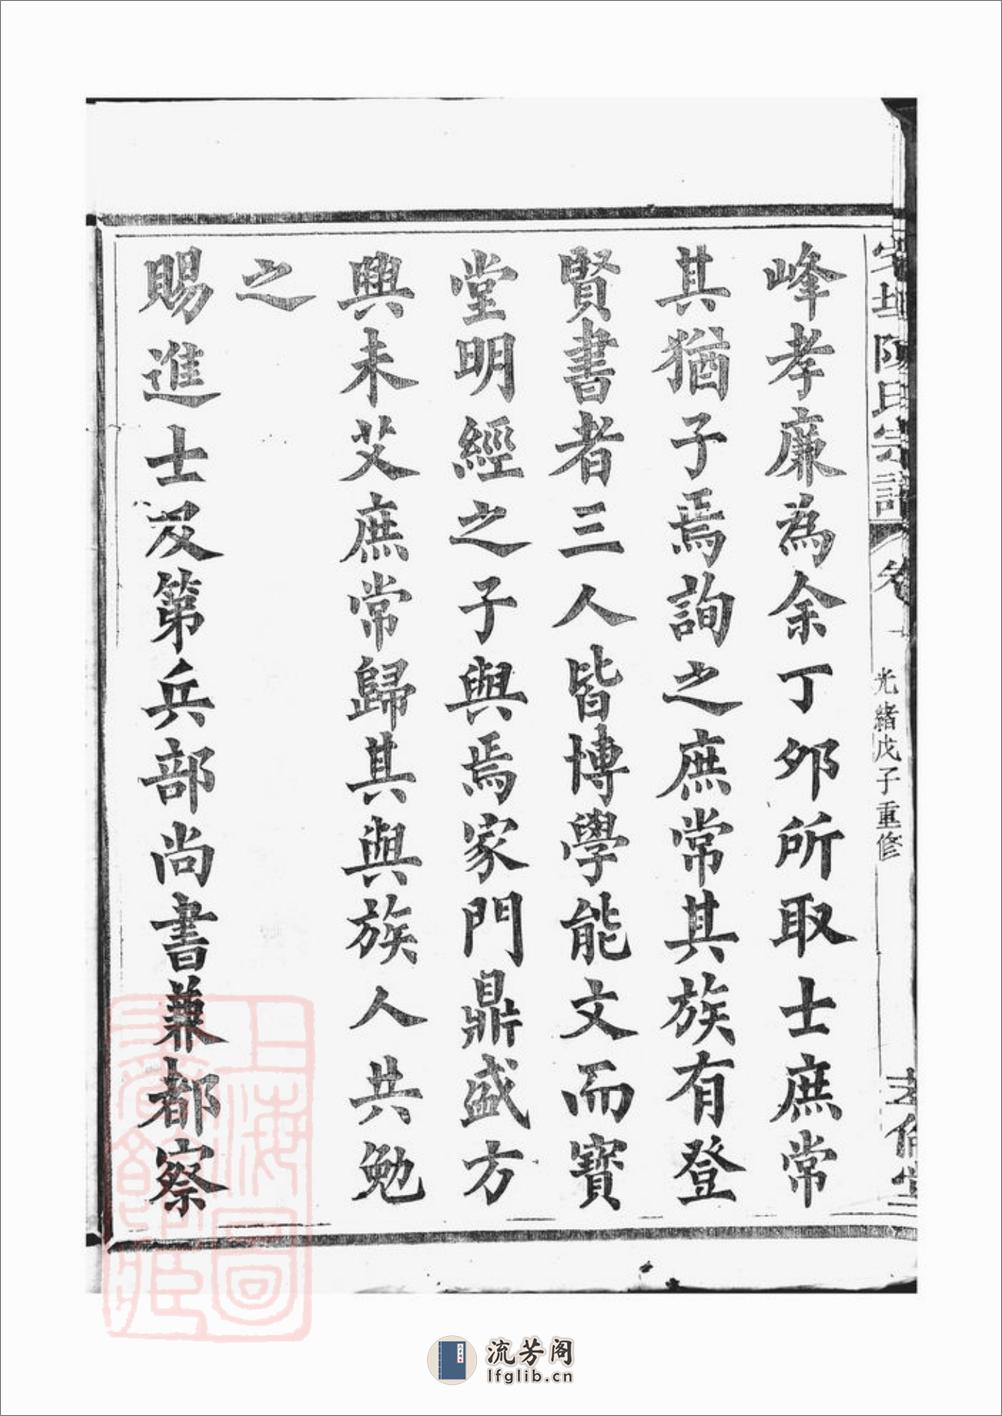 陳氏宗譜 卷
光緒戊子重修
峰孝廉為余丁夘所取士庶常
其猶子焉詢之庶常其族有登
賢書者三人皆博學能文而寶
堂明經之子與焉家門鼎盛方
興未艾庶常歸其與族人共勉
之
賜進士及第兵部尚書兼都察
上海圖
流芳阁
lfglib.cn